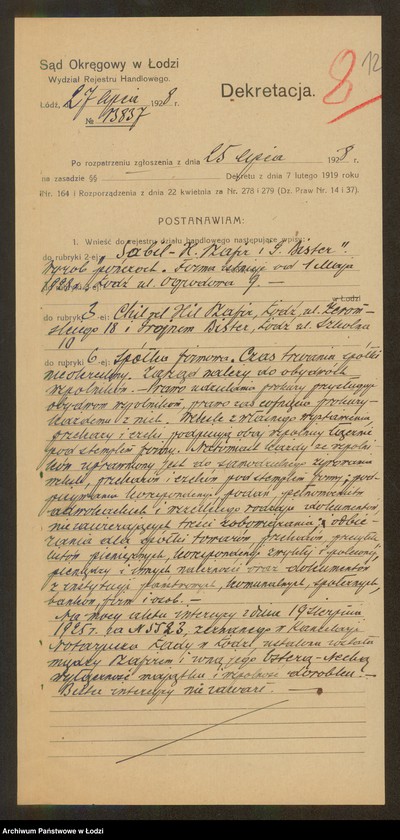 Sąd Okręgowy w Łodzi
Wydział Rejestru Handlowego.
8 12
Łódź, 27 lipca 1928 r.
№ 13837
Dekretacja.
Po rozpatrzeniu zgłoszenia z dnia 25 lipca 1928 r.
na zasadzie §§ Dekretu z dnia 7 lutego 1919 roku
Nr. 164 i Rozporządzenia z dnia 22 kwietnia za Nr. 278 i 279 (Dz. Praw Nr. 14 i 37).
POSTANAWIAM:
1. Wnieść do rejestru działu handlowego następujące wpisy:
do rubryki 2-ej: „Sabil - K. Szajr i S. Bister".
Wyrób pończoch. Firma istnieje od 1 Maja
1928 r. Łódź ul. Ogrodowa 9. —
w Łodzi
do rubryki 3-ej: Chil Szajr, Łódź, ul. Żerom-
skiego 18 i Bister, Łódź ul. Szkolna
10
do rubryki 6-ej: Spółka firmowa. Czas trwania spółki
nieokreślony. Zarząd należy do obydwóch
wspólników. — Prawo udzielania prokury przysługuje
obydwom wspólnikom, prawo zaś cofnięcia prokury -
każdemu z nich. Weksle z własnego wystawienia
przekazy i czeki podpisują obaj wspólnicy łącznie
pod stemplem firmy. Natomiast każdy ze wspólni-
ków uprawniony jest do samodzielnego żyrowania
weksli, przekazów i czeków pod stemplem firmy, pod-
pisywania korespondencji, podań, pełnomocnictw
adwokackich i wszelkiego rodzaju dokumentów,
nie zawierających treści zobowiązania i odbie-
rania dla spółki towarów, przekazów, przesyłek
listów pieniężnych, korespondencji zwykłej i poleconej,
pieniędzy i innych należności oraz dokumentów
z instytucji państwowych, komunalnych, społecznych,
banków, firm i osób. —
Na mocy aktu intercyzy z dnia 19 Sierpnia
1925 r. za N 5523, zeznanego w Kancelarji
Notarjusza w Łodzi, ustalona została
między Szajrem i żoną jego
wyłączność majątku i wspólność dorobku. —
Bister intercyzy nie zawarł. —
Archiwum Państwowe w Łodzi